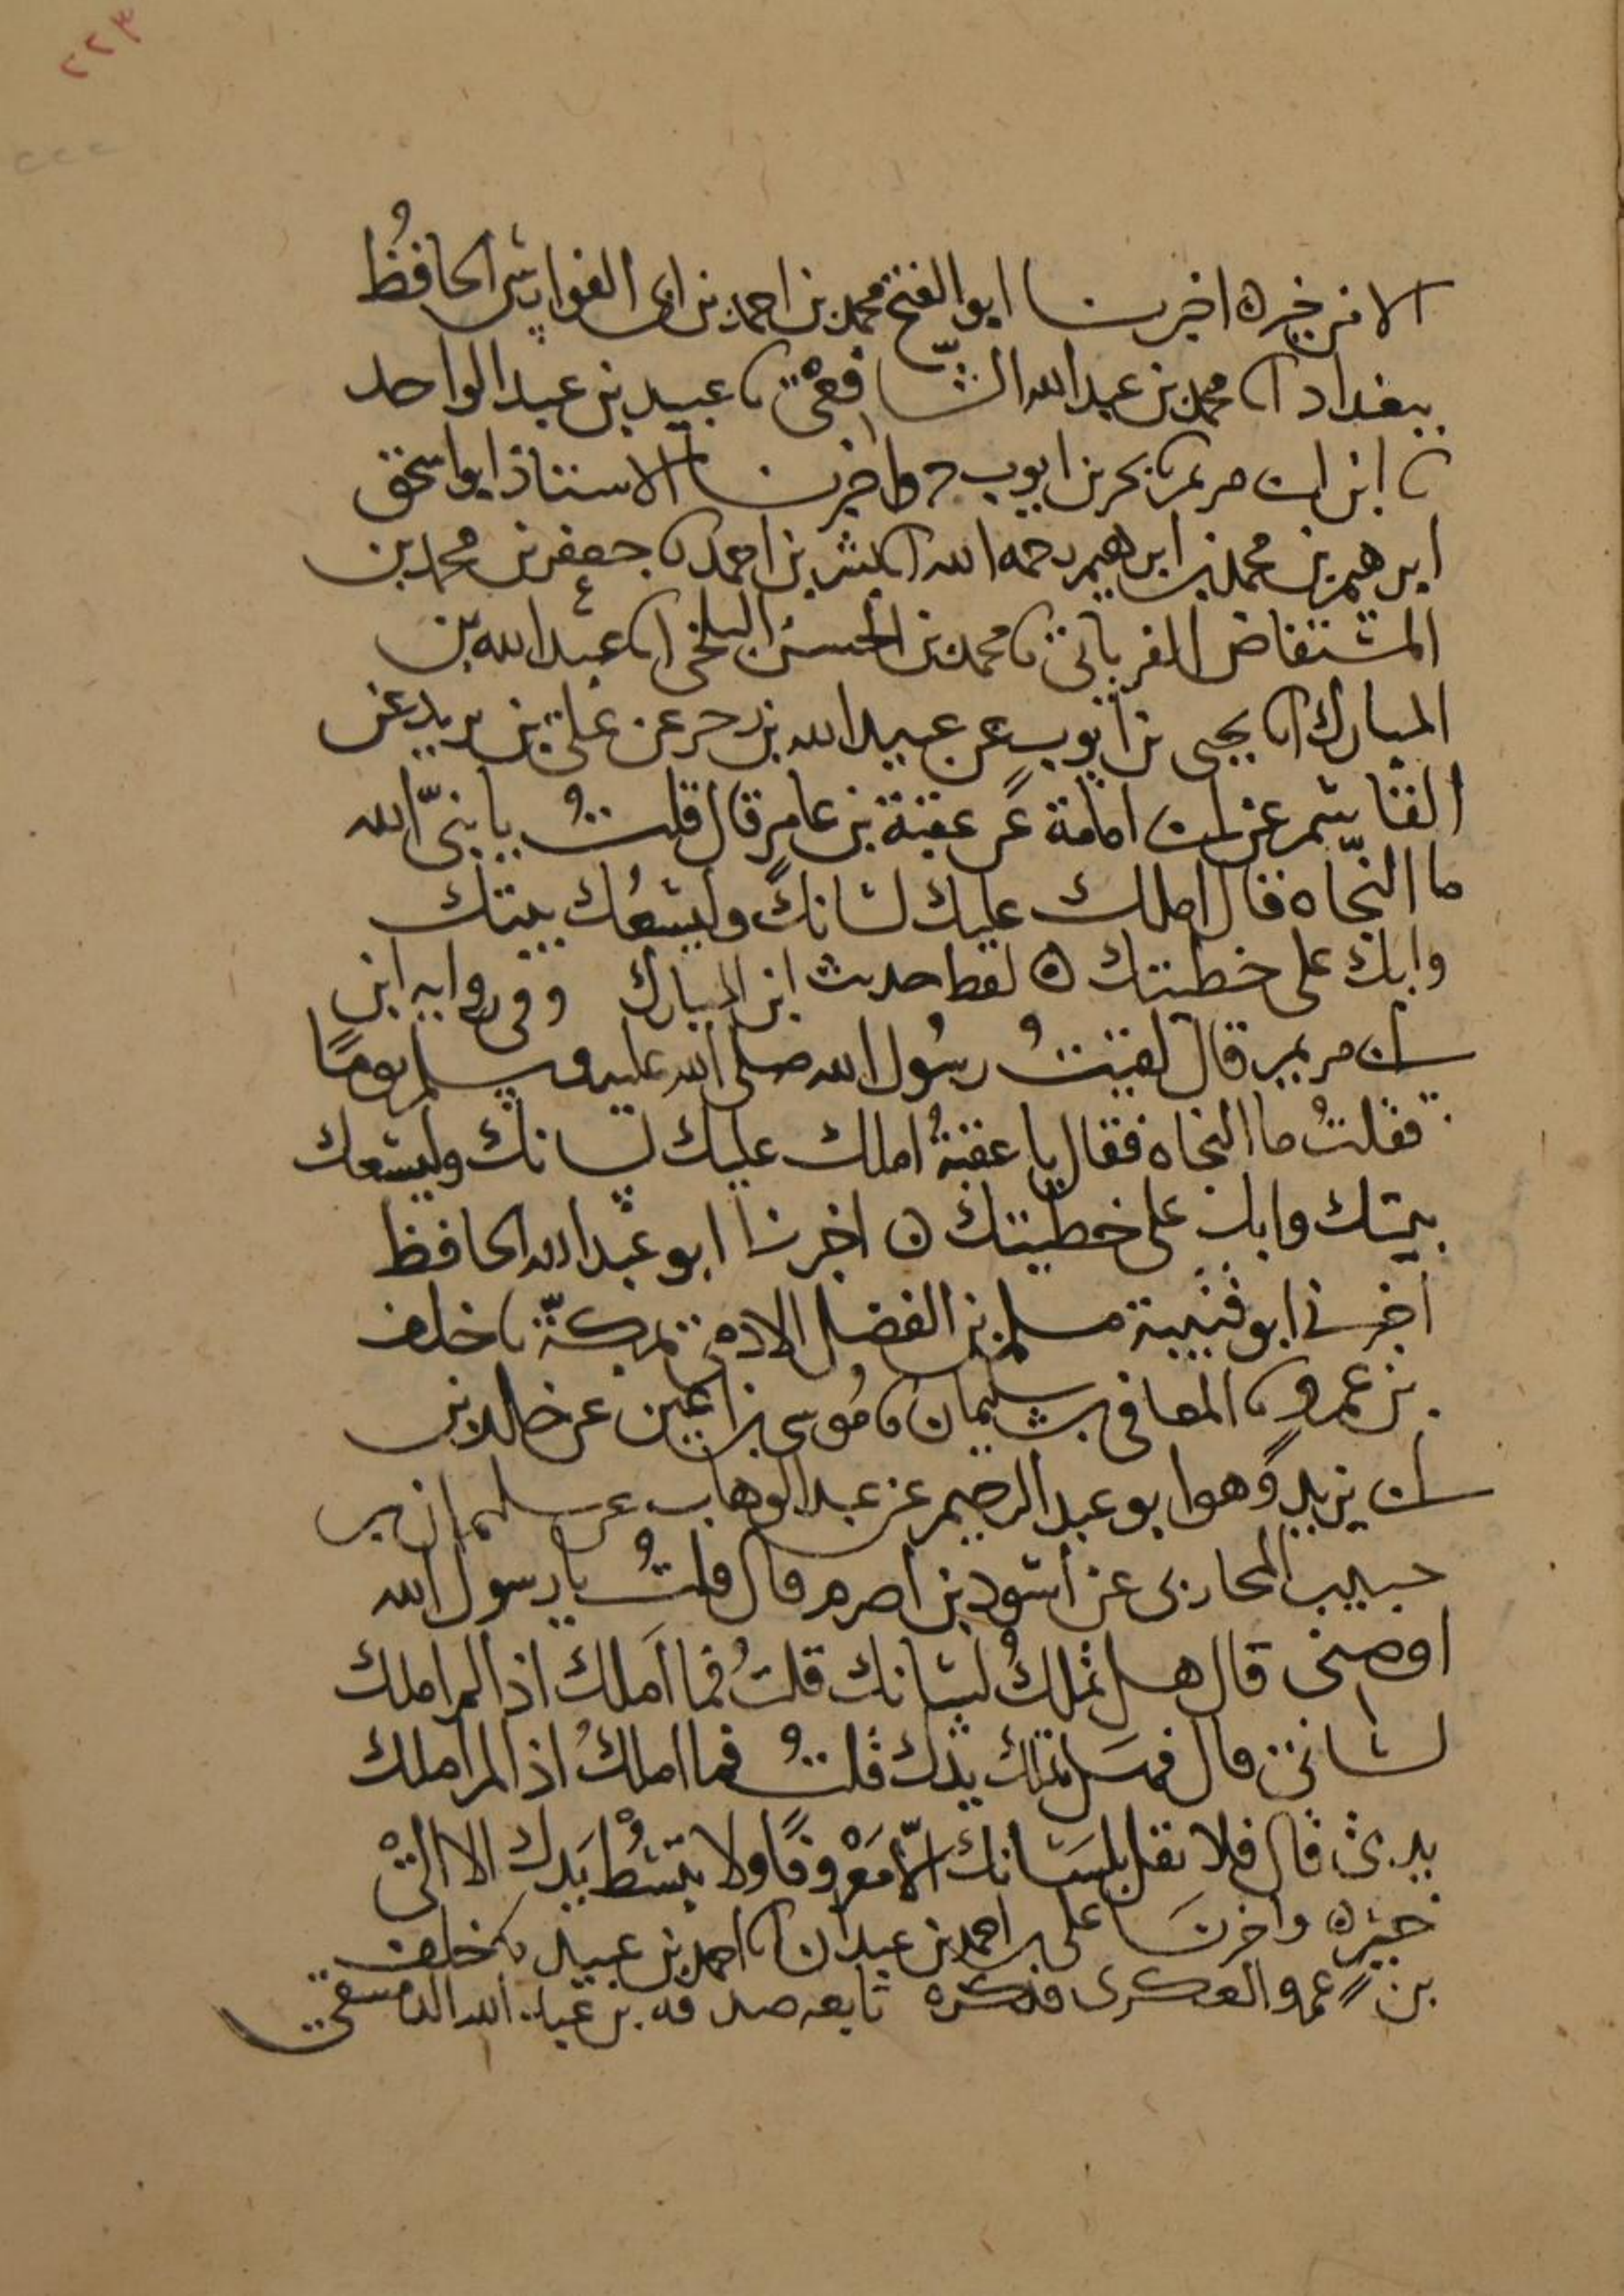 ٢٢٣
٢٢٢
الا من خير ه اخبرنا ابو الفتح محمد بن احمد بن ابى الفوارس الحافظ
ببغداد انا محمد بن عبد الله الشافعي نا عبيد بن عبد الواحد
نا ابن ابى مريم نا يحيى بن ايوب ح واخبرنا الاستاذ ابو اسحق
ابرهيم بن محمد بن ابرهيم رحمه الله انا بشر بن احمد نا جعفر بن محمد بن
المستفاض الفريابي نا محمد بن الحسن البلخي انا عبد الله بن
المبارك انا يحيى بن ايوب عن عبيد الله بن زحر عن علي بن يزيد عن
القاسم عن ابى امامة عن عقبة بن عامر قال قلت يا نبيّ الله
ما النجاه قال املك عليك لسانك وليسعك بيتك
وابك على خطيتك ه لفظ حديث ابن المبارك وفي روايه ابن
ابى مريم قال لقيت رسول الله صلى الله عليه وسلم يومًا
فقلتُ ما النجاه فقال يا عقبةُ املك عليك لسانك وليسعك
بيتك وابك على خطيتك ه اخبرنا ابو عبد الله الحافظ
اخبرني ابو قتيبة مسلم بن الفضل الادمي بمكّة نا خلف
بن عمرو نا المعافى بن سليمان نا موسى بن اعين عن خالد بن
ابى يزيد وهو ابو عبد الرحيم عن عبد الوهاب عن سليمان بن
حبيب المحاربى عن اسود بن اصرم قال قلتُ يا رسول الله
اوصنى قال هل تملكُ لسانك قلتُ فما املك اذا لم املك
لساني قال فهل تملك يدك قلتُ فما املكُ اذا لم املك
يدي قال فلا تقل بلسانك الّا مَعْروفًا ولا تبسُطْ يَدك الا الىْ
خير ه واخبرنا على بن احمد بن عبدان انا احمد بن عبيد نا خلف
بن عمرو العكبرى فذكره تابعه صدقه بن عبد الله الدمشقي